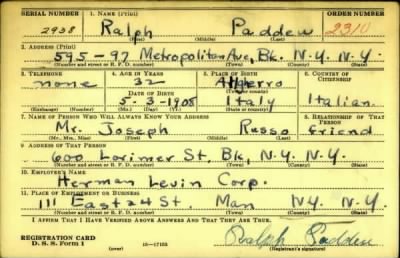 SERIAL NUMBER 1. NAME (Print) ORDER NUMBER
2938 Ralph Padden 2310
(First) (Middle) (Last)
2. ADDRESS (Print)
595-97 Metropolitan Ave, Bk. N.Y. N.Y.
(Number and street or R. F. D. number) (Town) (County) (State)
3. TELEPHONE 4. AGE IN YEARS 5. PLACE OF BIRTH 6. COUNTRY OF CITIZENSHIP
none 32
DATE OF BIRTH (Town or county)
5-3-1908 Italy Italian
(Exchange) (Number) (Mo.) (Day) (Yr.) (State or country)
7. NAME OF PERSON WHO WILL ALWAYS KNOW YOUR ADDRESS 8. RELATIONSHIP OF THAT PERSON
Mr. Joseph Russo friend
(Mr., Mrs., Miss) (First) (Middle) (Last)
9. ADDRESS OF THAT PERSON
600 Lorimer St, Bk, N.Y. N.Y.
(Number and street or R. F. D. number) (Town) (County) (State)
10. EMPLOYER'S NAME
Herman Levin Corp.
11. PLACE OF EMPLOYMENT OR BUSINESS
111 East 24 St. Man N.Y. N.Y.
(Number and street or R. F. D. number) (Town) (County) (State)
I AFFIRM THAT I HAVE VERIFIED ABOVE ANSWERS AND THAT THEY ARE TRUE.
REGISTRATION CARD
D. S. S. Form 1 16-17105 (over) Ralph Padden
(Registrant's signature)